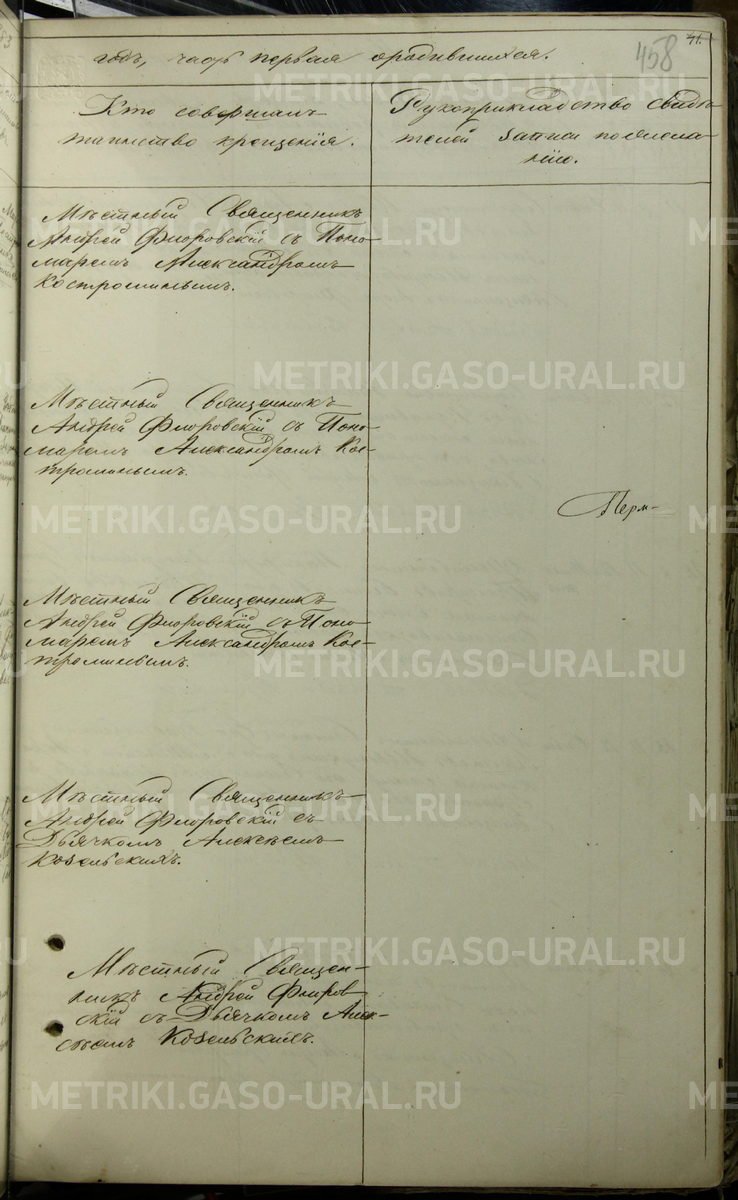 41.
458
годъ, часть первая о родившихся.
Кто совершалъ
таинство крещенія.
Рукоприкладство свидѣ-
телей записи по жела-
нію.
Мѣстный Священникъ
Андрей Флоровскій съ Поно-
маремъ Александромъ
Костроминымъ.
Мѣстный Священникъ
Андрей Флоровскій съ Поно-
маремъ Александромъ Кос-
троминымъ.
Перм-
Мѣстный Священникъ
Андрей Флоровскій съ Поно-
маремъ Александромъ Кос-
троминымъ.
Мѣстный Священникъ
Андрей Флоровскій съ
Дьячкомъ Алексѣемъ
Козельскихъ.
Мѣстный Священ-
никъ Андрей Флоров-
скій съ Дьячкомъ Алек-
сѣемъ Козельскихъ.
METRIKI.GASO-URAL.RU